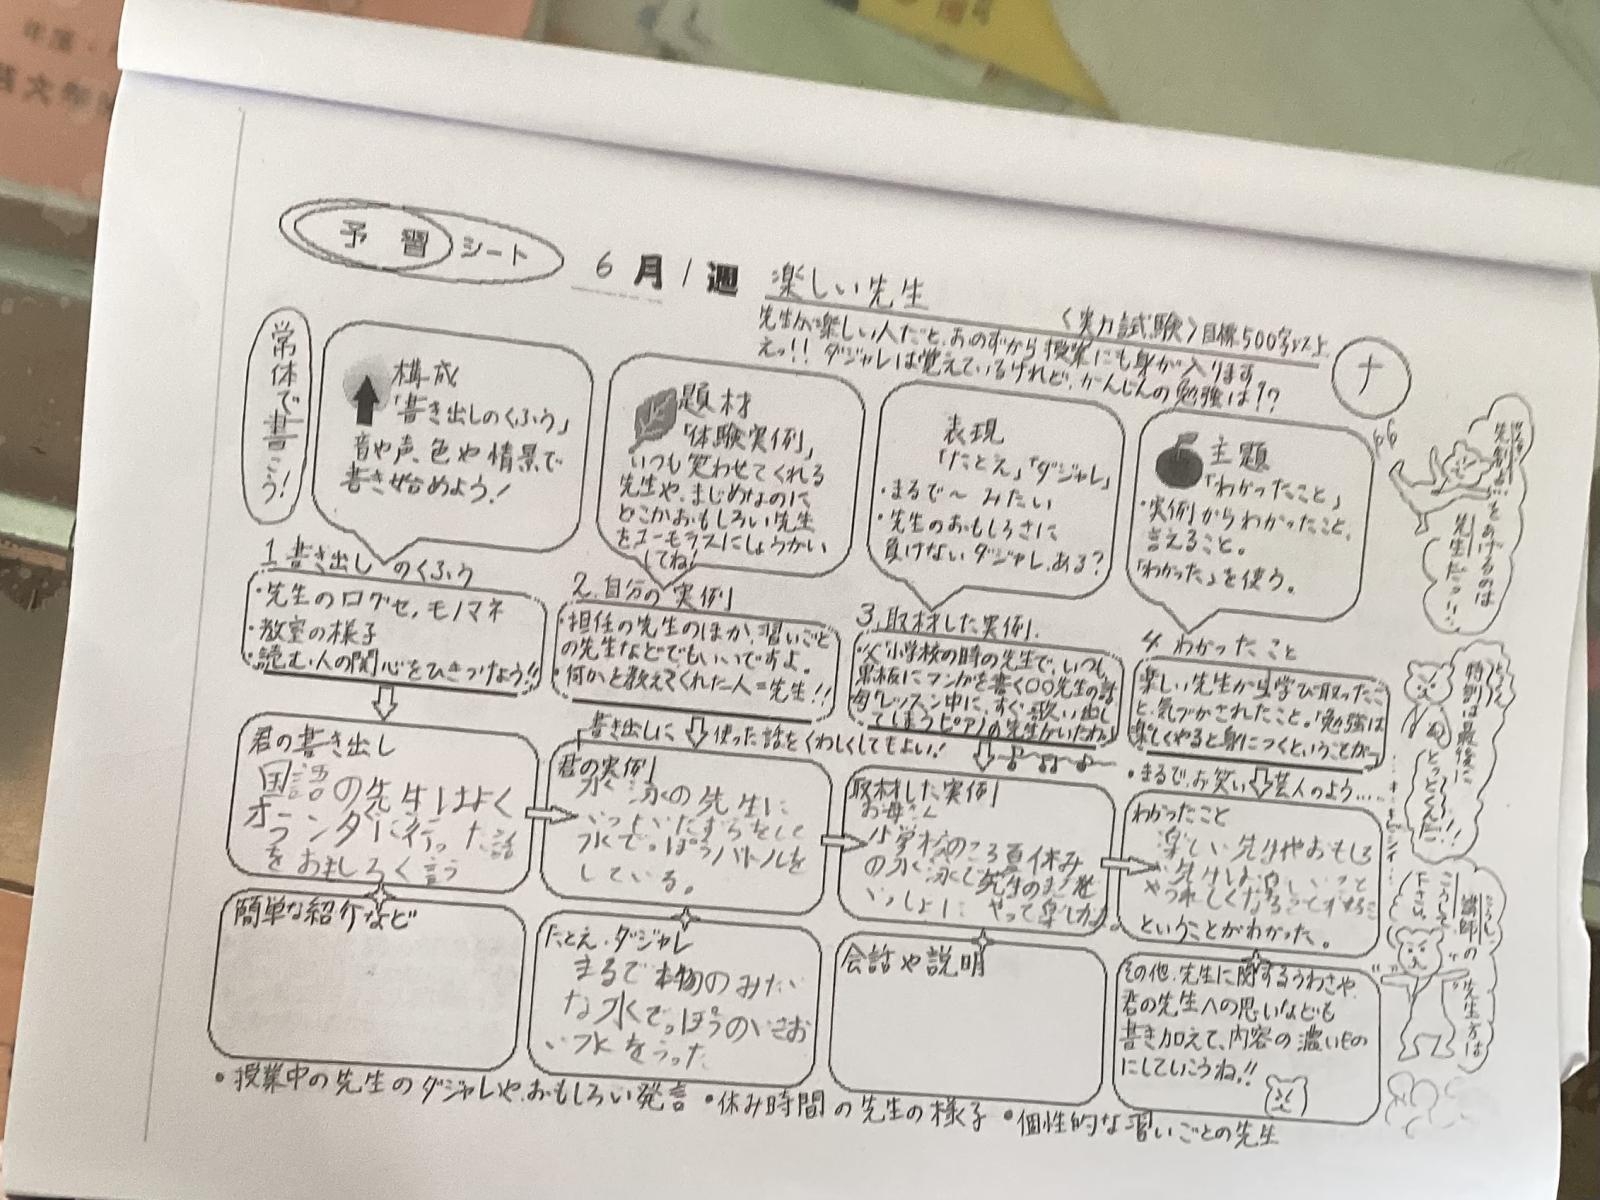 予習シート
6月1週 楽しい先生
〈実力試験〉目標500字以上
先生が楽しい人だと、おのずから授業にも身が入ります。
えっ!! ダジャレは覚えているけれど、かんじんの勉強は??
ナ
常体で書こう!
構成
「書き出しのくふう」
音や声、色や情景で
書き始めよう!
題材
「体験実例」
いつも笑わせてくれる
先生や、まじめなのに
どこかおもしろい先生
をユーモラスにしょうかい
してね!
表現
「たとえ」「ダジャレ」
・まるで〜みたい
・先生のおもしろさに
負けないダジャレ、ある?
主題
「わかったこと」
・実例からわかったこと、
言えること。
「わかった」を使う。
1 書き出しのくふう
・先生の口グセ、モノマネ
・教室の様子
・読む人の関心をひきつけよう!!
2. 自分の実例
・担任の先生のほか、習いごと
の先生などでもいいですよ。
・何かと教えてくれた人=先生!!
3. 取材した実例.
・父「小学校の時の先生で、いつも
黒板にマンガを書く〇〇先生の話
母「レッスン中に、すぐ歌い出し
てしまうピアノの先生がいたわ」
4 わかったこと
楽しい先生から学び取ったこ
と、気づかされたこと。「勉強は
楽しくやると身につくということが…
書き出しに使った話をくわしくしてもよい!
・まるで、お笑い芸人のよう…
君の書き出し
国語の先生はよく
オランダに行った話
をおもしろく言う
君の実例
水泳の先生に
いたずらをして
水でっぽうバトルを
している。
取材した実例
お母さん
小学校のころ夏休み
の水泳で先生の
いっしょに やって楽しかった
わかったこと
楽しい先生やおもしろ
い先生
ということがわかった。
簡単な紹介など
たとえ・ダジャレ
まるで本物のみたい
な水でっぽうのいきおい
水をうった
会話や説明
その他、先生に関するうわさや、
君の先生への思いなども
書き加えて、内容の濃いもの
にしていこうね!!
・授業中の先生のダジャレや、おもしろい発言 ・休み時間の先生の様子 ・個性的な習いごとの先生
をあげるのは
先生だっ!!
特別は最後に
とっとくんだ!!
講師の先生方は
こうして
下さい。